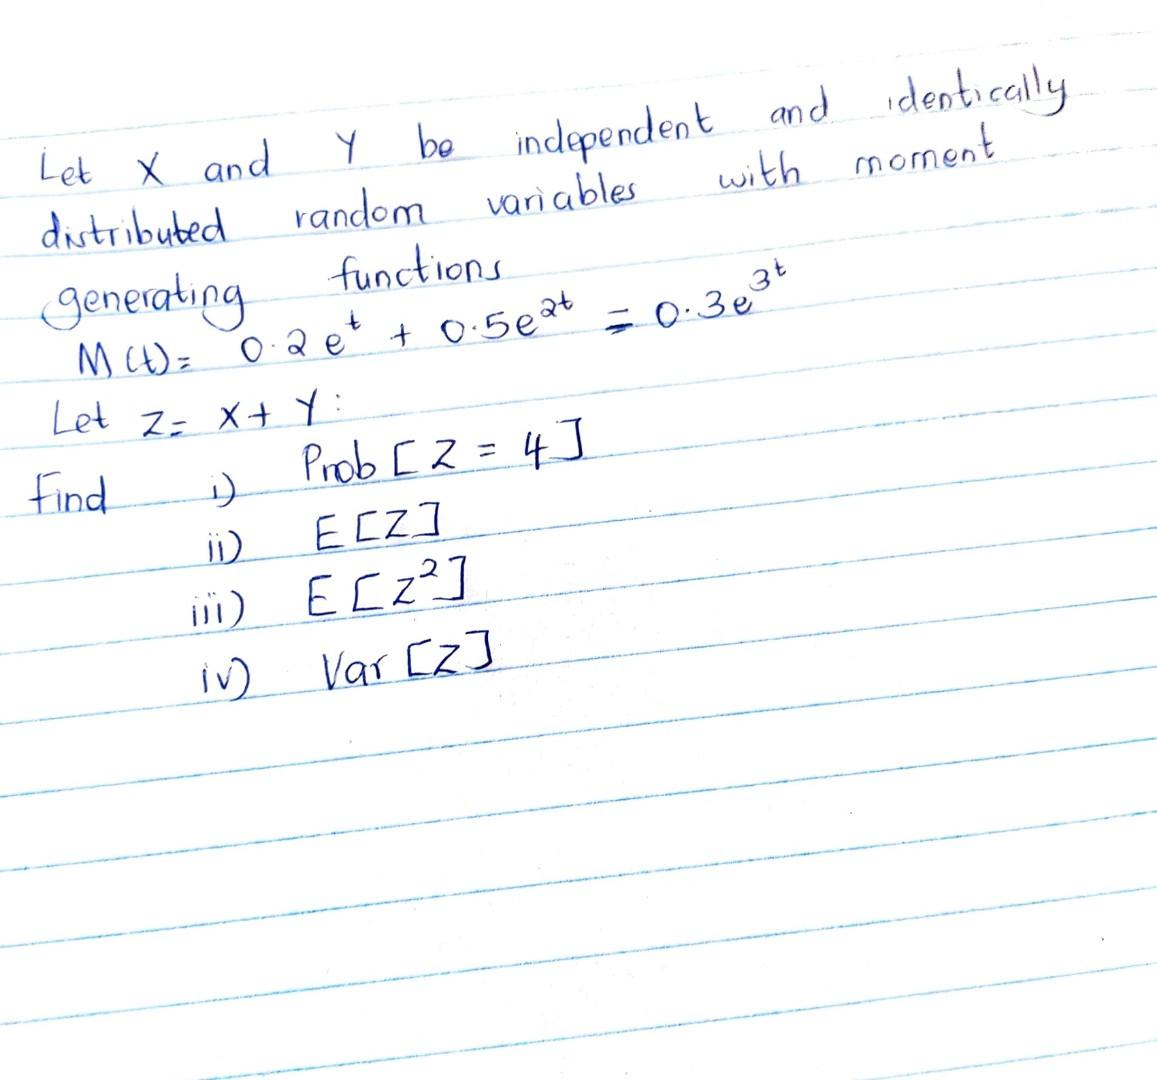 Let X and Y be independent and identically
distributed random variables with moment
generating functions
M(t)= 0.2e^t + 0.5e^2t = 0.3e^3t
Let Z= X+Y:
Find i) Prob [Z = 4]
ii) E[Z]
iii) E[Z²]
iv) Var [Z]